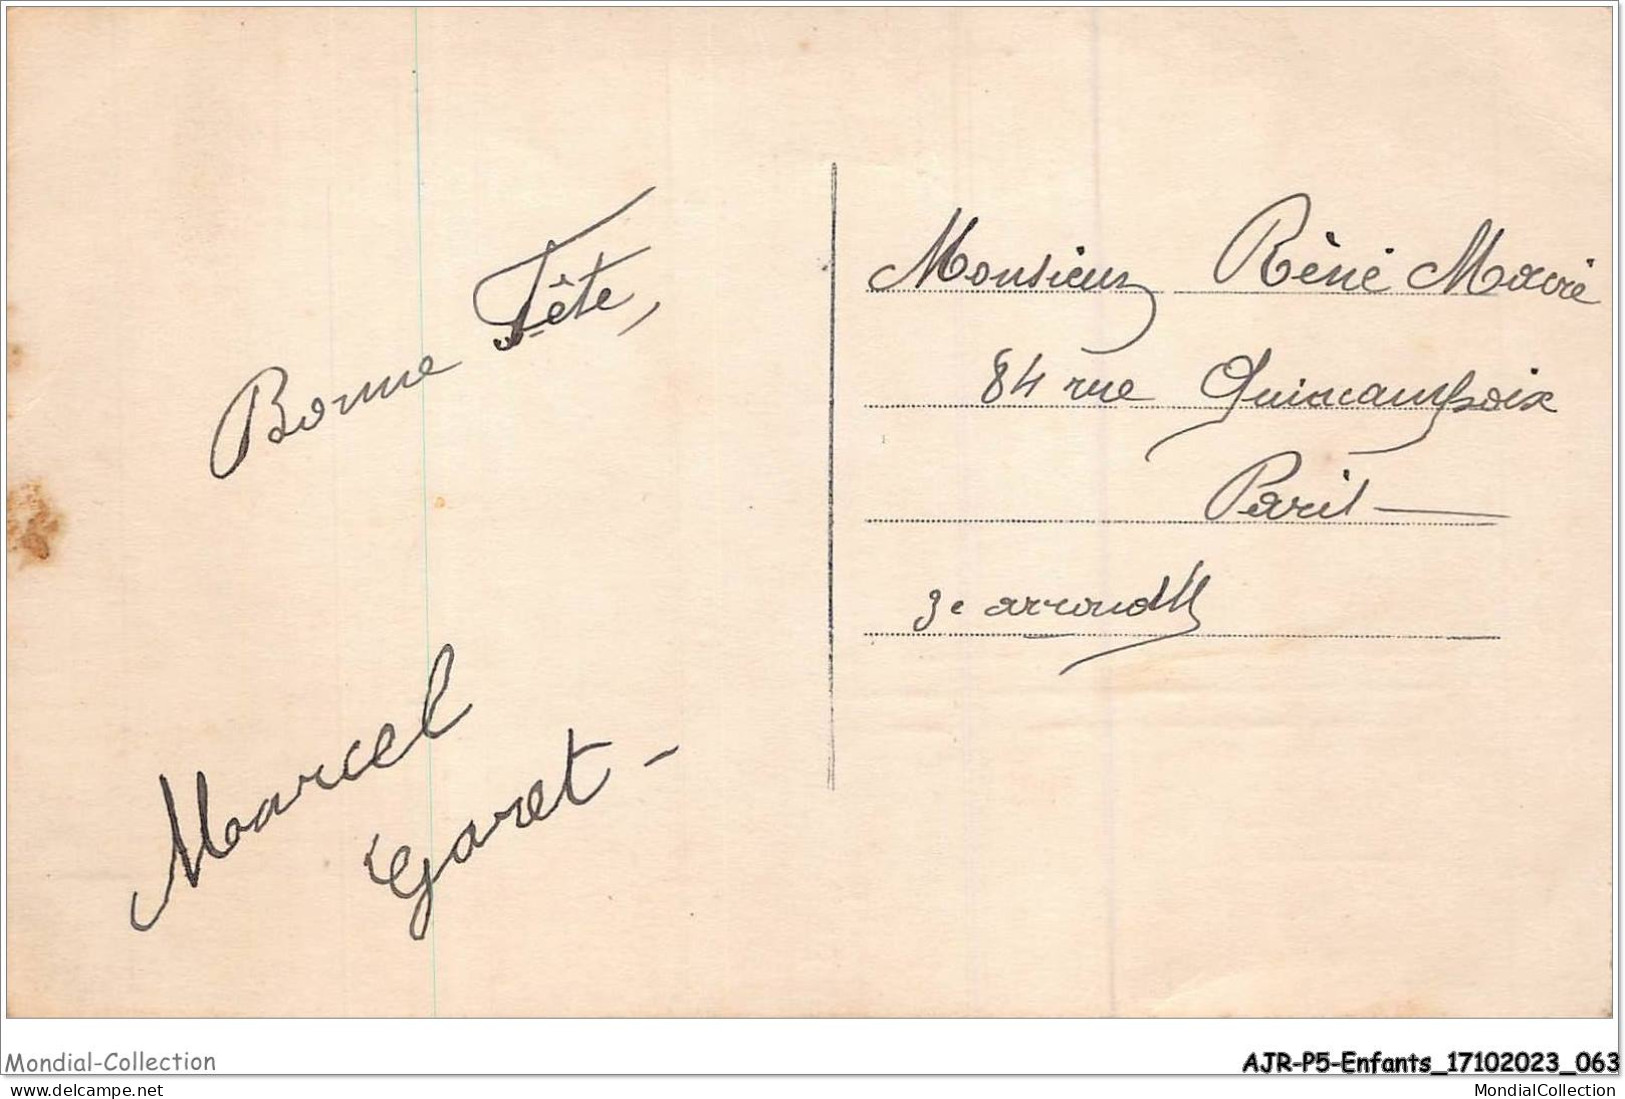 Bonne Fête,
Marcel
Garet -
Monsieur Rèné
84 rue Quincampoix
Paris —
3e arrondt
Mondial-Collection
AJR-P5-Enfants_17102023_063
www.delcampe.net
MondialCollection